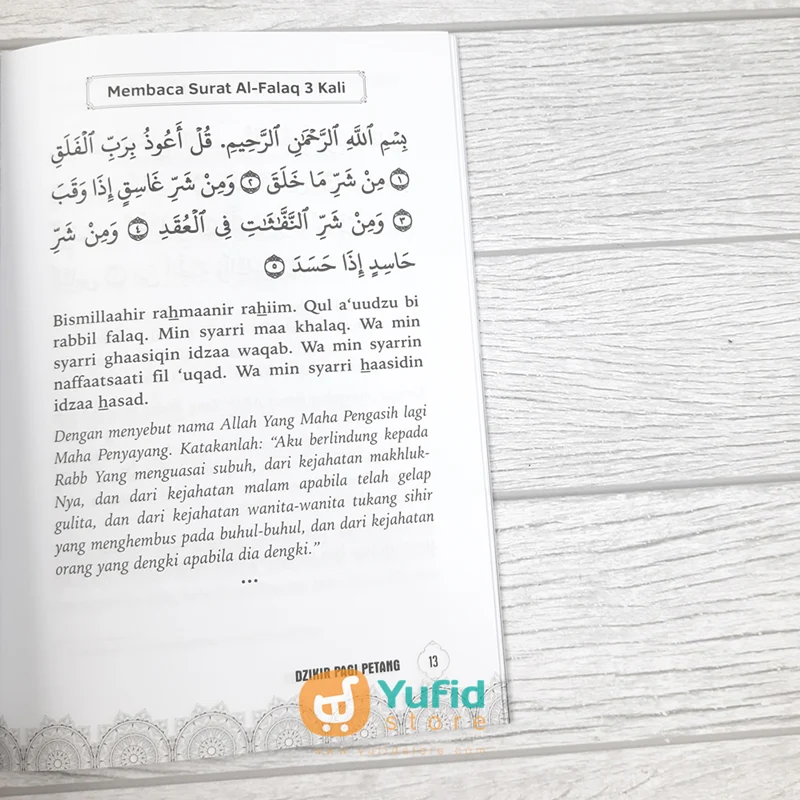 Membaca Surat Al-Falaq 3 Kali
بِسْمِ اللَّهِ الرَّحْمَٰنِ الرَّحِيمِ. قُلْ أَعُوذُ بِرَبِّ الْفَلَقِ
۝١ مِنْ شَرِّ مَا خَلَقَ ۝٢ وَمِنْ شَرِّ غَاسِقٍ إِذَا وَقَبَ
۝٣ وَمِنْ شَرِّ النَّفَّٰثَٰتِ فِى الْعُقَدِ ۝٤ وَمِنْ شَرِّ
حَاسِدٍ إِذَا حَسَدَ ۝٥
Bismillaahir rahmaanir rahiim. Qul a‘uudzu bi
rabbil falaq. Min syarri maa khalaq. Wa min
syarri ghaasiqin idzaa waqab. Wa min syarrin
naffaatsaati fil ‘uqad. Wa min syarri haasidin
idzaa hasad.
Dengan menyebut nama Allah Yang Maha Pengasih lagi
Maha Penyayang. Katakanlah: “Aku berlindung kepada
Rabb Yang menguasai subuh, dari kejahatan makhluk-
Nya, dan dari kejahatan malam apabila telah gelap
gulita, dan dari kejahatan wanita-wanita tukang sihir
yang menghembus pada buhul-buhul, dan dari kejahatan
orang yang dengki apabila dia dengki.”
...
DZIKIR PAGI PETANG 13
Yufid
store
www.yufidstore.com